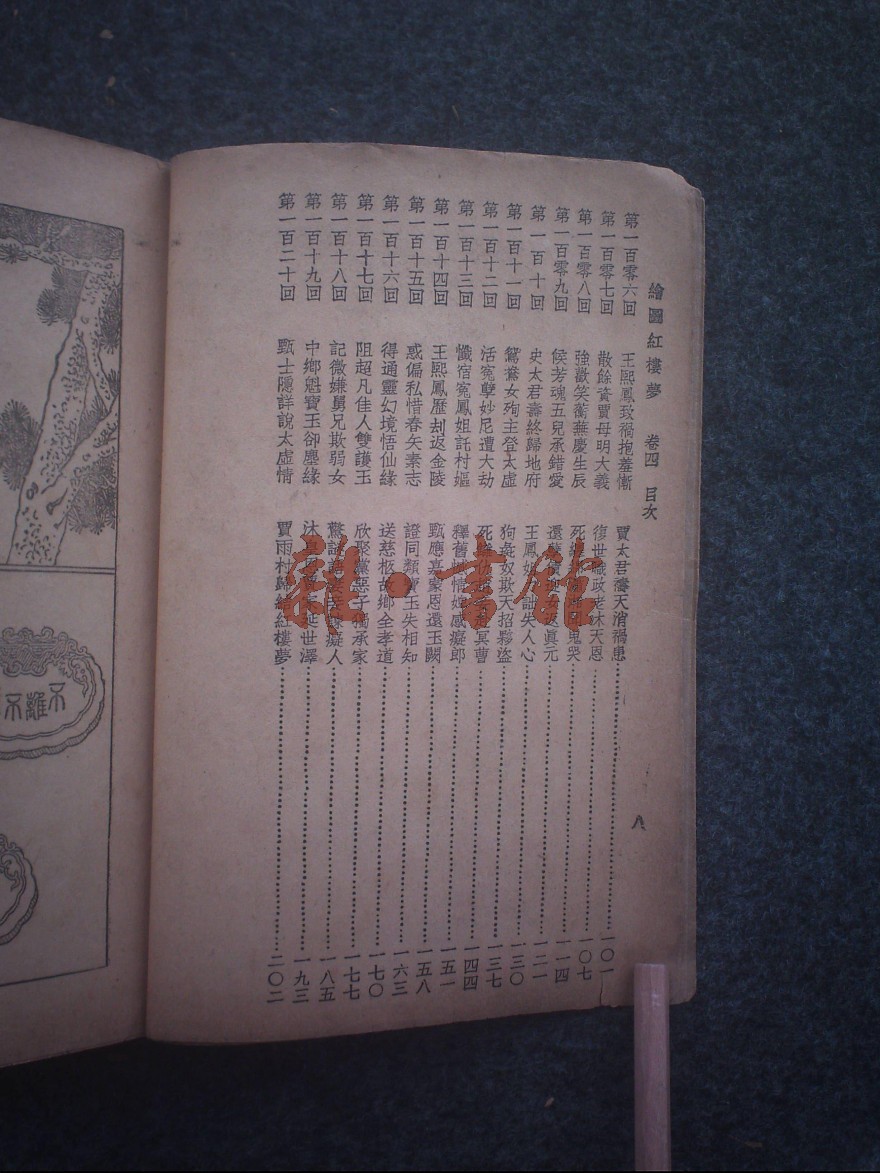 繪圖紅樓夢 卷四 目次 八
第一百零六回 王熙鳳致禍抱羞慚 賈太君禱天消禍患 一〇一
第一百零七回 散餘資賈母明大義 復世職政老沐天恩 一〇七
第一百零八回 強歡笑蘅蕪慶生辰 死 聞鬼哭 一一四
第一百零九回 候芳魂五兒承錯愛 還 女返眞元 一二一
第一百十回 史太君壽終歸地府 王鳳姐 詘失人心 一三〇
第一百十一回 鴛鴦女殉主登太虛 狗彘奴欺天招夥盜 一三七
第一百十二回 活冤孽妙尼遭大劫 死 冥曹 一四四
第一百十三回 懺宿冤鳳姐託村嫗 釋舊憾情婢感癡郎 一五一
第一百十四回 王熙鳳歷刦返金陵 甄應嘉蒙恩還玉闕 一五八
第一百十五回 惑偏私惜春矢素志 證同類寶玉失相知 一六三
第一百十六回 得通靈幻境悟仙緣 送慈柩故鄉全孝道 一七〇
第一百十七回 阻超凡佳人雙護玉 欣聚黨惡子獨承家 一七七
第一百十八回 記微嫌舅兄欺弱女 驚謎語 諫癡人 一八五
第一百十九回 中鄉魁寶玉卻塵緣 沐皇恩 延世澤 一九三
第一百二十回 甄士隱詳說太虛情 賈雨村歸結紅樓夢 二〇二
不離不
雜·書館